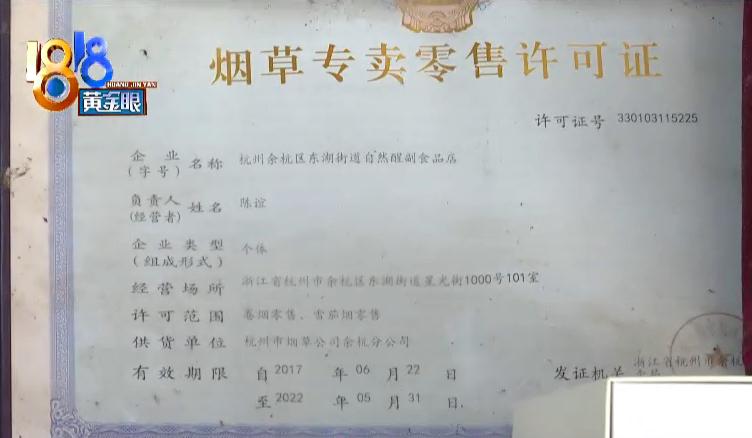 1818
HUANG JIN YAN
黄金眼
烟草专卖零售许可证
许可证号 330103115225
企业(字号)名称 杭州余杭区东湖街道自然醒副食品店
负责人(经营者)姓名 陈谊
企业类型(组成形式) 个体
经营场所 浙江省杭州市余杭区东湖街道星光街1000号101室
许可范围 卷烟零售、雪茄烟零售
供货单位 杭州市烟草公司余杭分公司
有效期限 自2017年06月22日
至2022年05月31日
发证机关 浙江省杭州市余杭